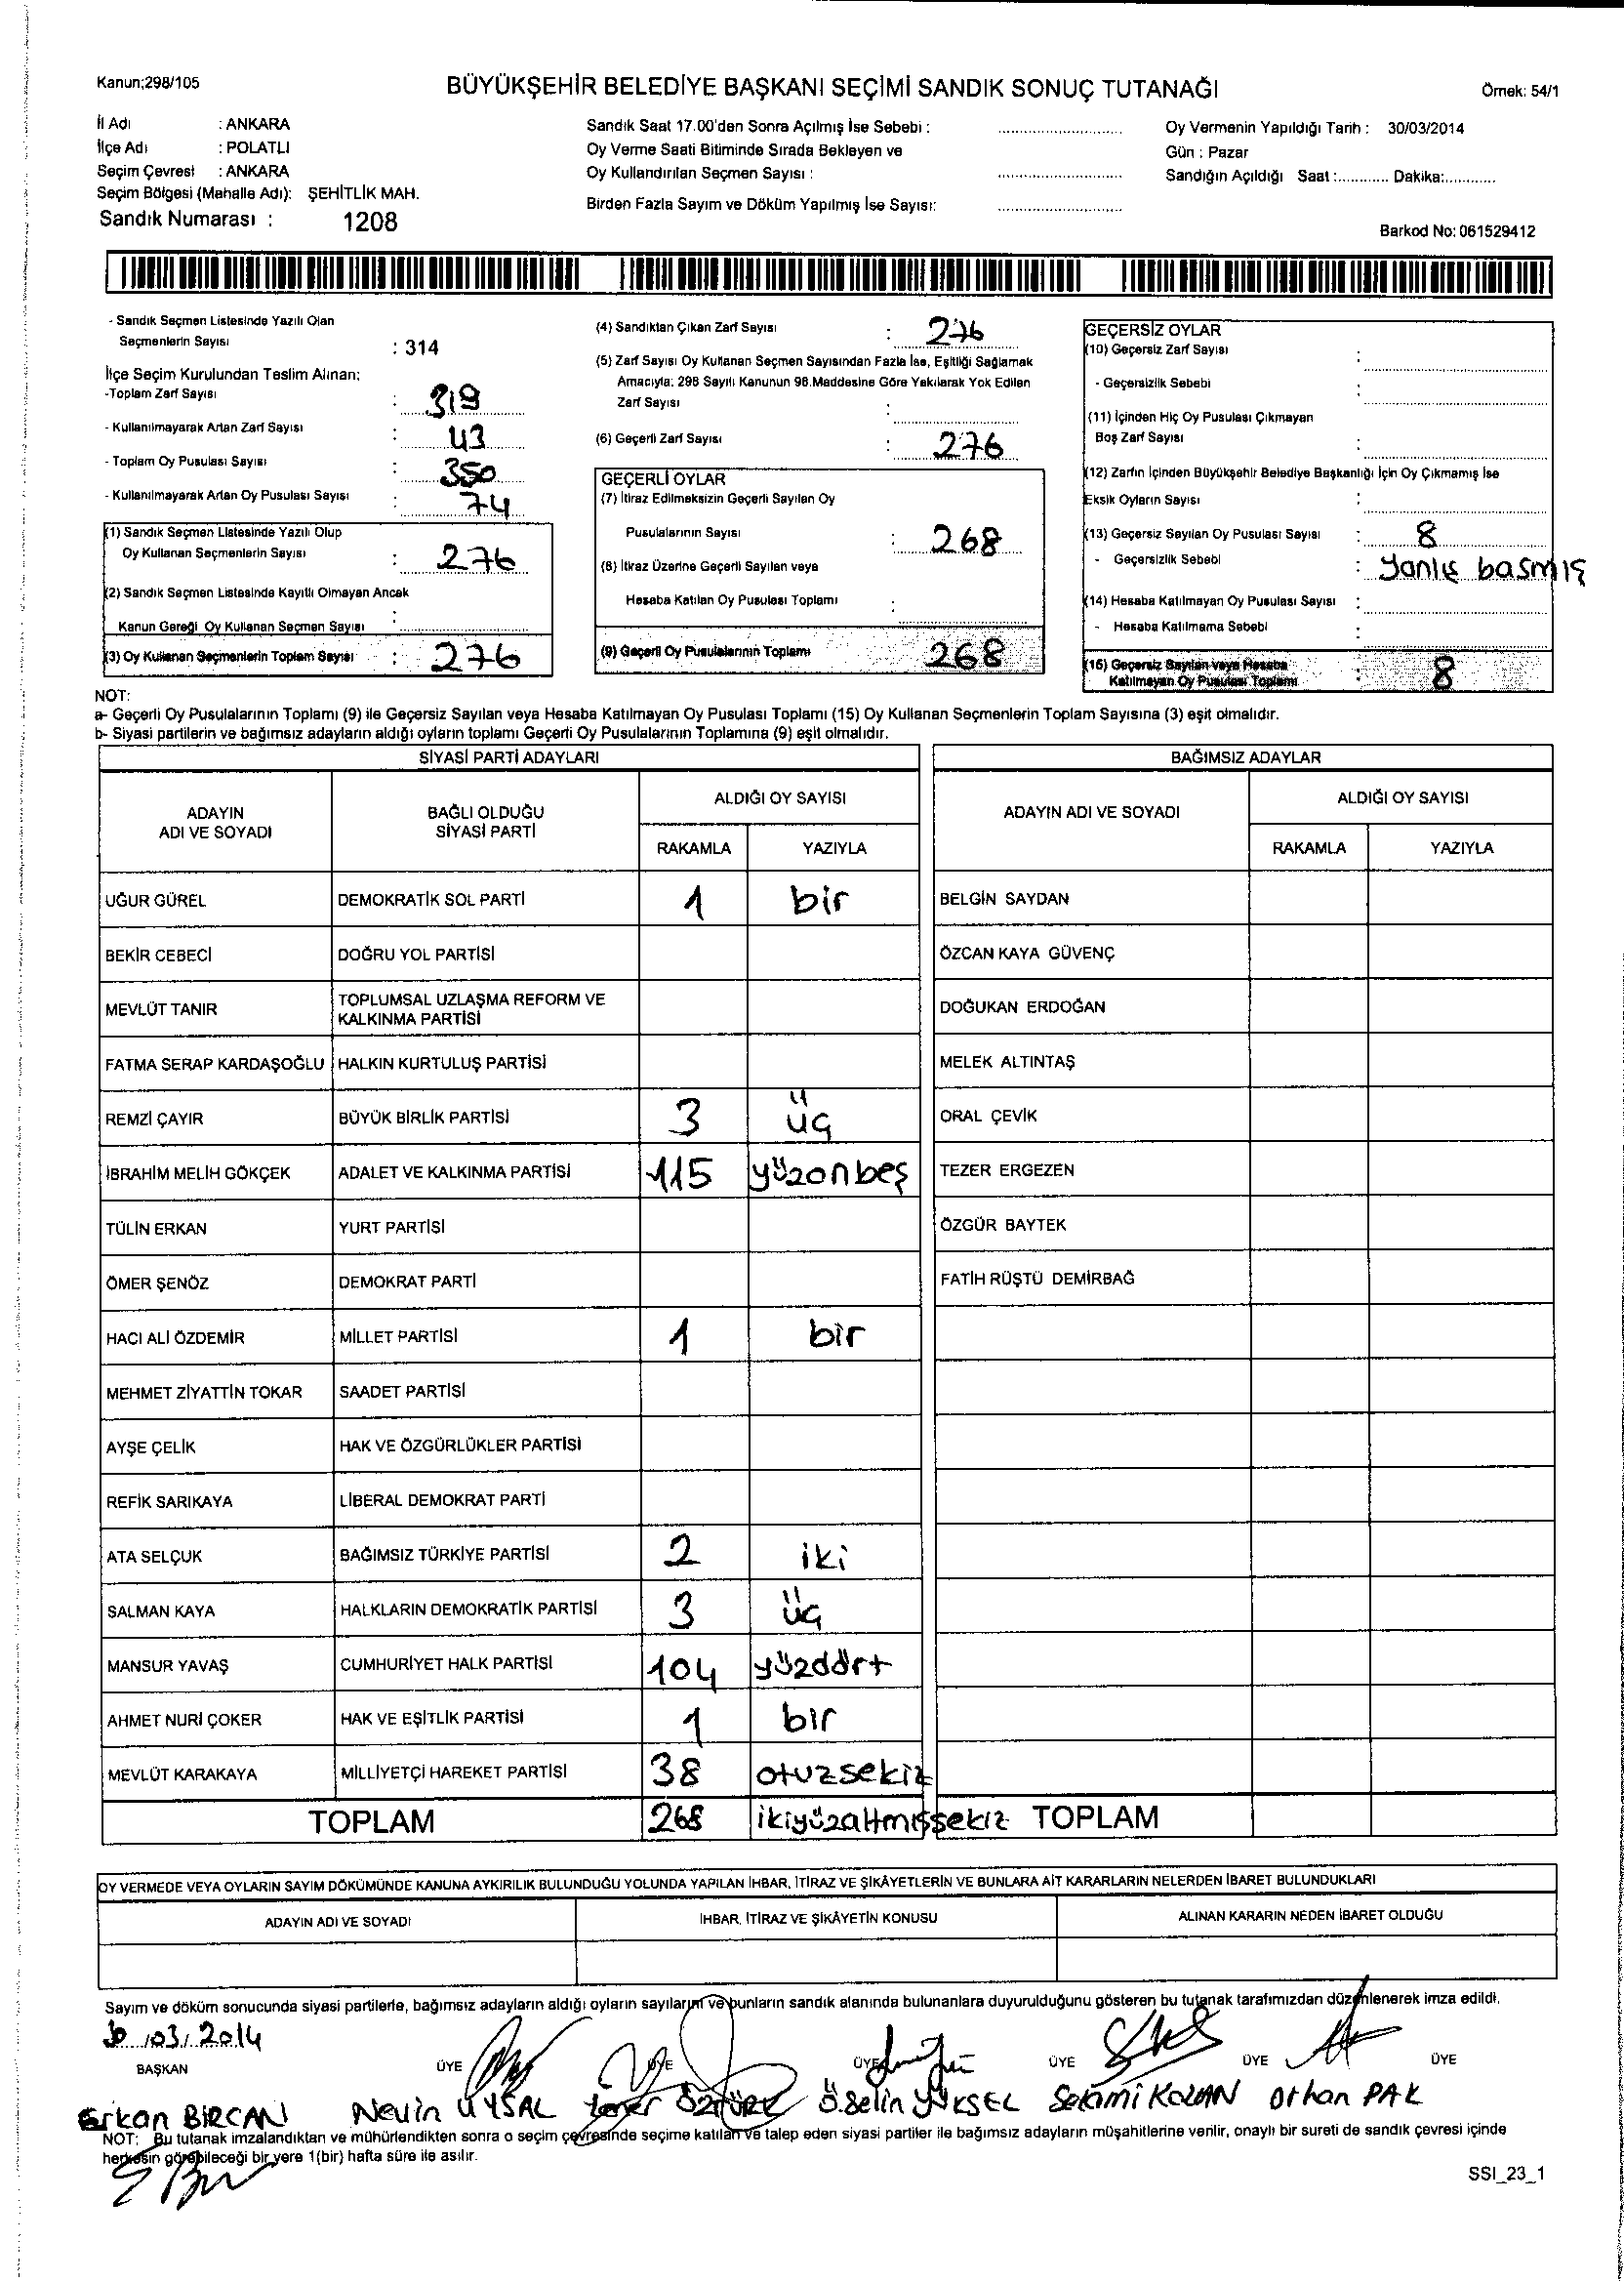 Kanun;298/105
BÜYÜKŞEHİR BELEDİYE BAŞKANI SEÇİMİ SANDIK SONUÇ TUTANAĞI
Örnek: 54/1
İl Adı : ANKARA
İlçe Adı : POLATLI
Seçim Çevresi : ANKARA
Seçim Bölgesi (Mahalle Adı): ŞEHİTLİK MAH.
Sandık Numarası : 1208
Sandık Saat 17.00'den Sonra Açılmış İse Sebebi :
Oy Verme Saati Bitiminde Sırada Bekleyen ve
Oy Kullandırılan Seçmen Sayısı :
Birden Fazla Sayım ve Döküm Yapılmış İse Sayısı:
Oy Vermenin Yapıldığı Tarih : 30/03/2014
Gün : Pazar
Sandığın Açıldığı Saat :........... Dakika:...........
Barkod No: 061529412
- Sandık Seçmen Listesinde Yazılı Olan
Seçmenlerin Sayısı : 314
İlçe Seçim Kurulundan Teslim Alınan:
-Toplam Zarf Sayısı : 319
- Kullanılmayarak Artan Zarf Sayısı : 43
- Toplam Oy Pusulası Sayısı : 350
- Kullanılmayarak Artan Oy Pusulası Sayısı : 74
(1) Sandık Seçmen Listesinde Yazılı Olup
Oy Kullanan Seçmenlerin Sayısı : 276
(2) Sandık Seçmen Listesinde Kayıtlı Olmayan Ancak
Kanun Gereği Oy Kullanan Seçmen Sayısı :
(3) Oy Kullanan Seçmenlerin Toplam Sayısı : 276
(4) Sandıktan Çıkan Zarf Sayısı : 276
(5) Zarf Sayısı Oy Kullanan Seçmen Sayısından Fazla İse, Eşitliği Sağlamak
Amacıyla; 298 Sayılı Kanunun 98.Maddesine Göre Yakılarak Yok Edilen
Zarf Sayısı :
(6) Geçerli Zarf Sayısı : 276
GEÇERLİ OYLAR
(7) İtiraz Edilmeksizin Geçerli Sayılan Oy
Pusulalarının Sayısı : 268
(8) İtiraz Üzerine Geçerli Sayılan veya
Hesaba Katılan Oy Pusulası Toplamı :
(9) Geçerli Oy Pusulalarının Toplamı 268
GEÇERSİZ OYLAR
(10) Geçersiz Zarf Sayısı :
- Geçersizlik Sebebi :
(11) İçinden Hiç Oy Pusulası Çıkmayan
Boş Zarf Sayısı :
(12) Zarfın İçinden Büyükşehir Belediye Başkanlığı İçin Oy Çıkmamış İse
Eksik Oyların Sayısı :
(13) Geçersiz Sayılan Oy Pusulası Sayısı : 8
- Geçersizlik Sebebi : Yanlış basmış
(14) Hesaba Katılmayan Oy Pusulası Sayısı :
- Hesaba Katılmama Sebebi :
(15) Geçersiz Sayılan veya Hesaba
Katılmayan Oy Pusulası Toplamı : 8
NOT:
a- Geçerli Oy Pusulalarının Toplamı (9) ile Geçersiz Sayılan veya Hesaba Katılmayan Oy Pusulası Toplamı (15) Oy Kullanan Seçmenlerin Toplam Sayısına (3) eşit olmalıdır.
b- Siyasi partilerin ve bağımsız adayların aldığı oyların toplamı Geçerli Oy Pusulalarının Toplamına (9) eşit olmalıdır.
SİYASİ PARTİ ADAYLARI
ADAYIN
ADI VE SOYADI
BAĞLI OLDUĞU
SİYASİ PARTİ
ALDIĞI OY SAYISI
RAKAMLA YAZIYLA
UĞUR GÜREL DEMOKRATİK SOL PARTİ 1 bir
BEKİR CEBECİ DOĞRU YOL PARTİSİ
MEVLÜT TANIR TOPLUMSAL UZLAŞMA REFORM VE
KALKINMA PARTİSİ
FATMA SERAP KARDAŞOĞLU HALKIN KURTULUŞ PARTİSİ
REMZİ ÇAYIR BÜYÜK BİRLİK PARTİSİ 3 üç
İBRAHİM MELİH GÖKÇEK ADALET VE KALKINMA PARTİSİ 115 yüzonbeş
TÜLİN ERKAN YURT PARTİSİ
ÖMER ŞENÖZ DEMOKRAT PARTİ
HACI ALİ ÖZDEMİR MİLLET PARTİSİ 1 bir
MEHMET ZİYATTİN TOKAR SAADET PARTİSİ
AYŞE ÇELİK HAK VE ÖZGÜRLÜKLER PARTİSİ
REFİK SARIKAYA LİBERAL DEMOKRAT PARTİ
ATA SELÇUK BAĞIMSIZ TÜRKİYE PARTİSİ 2 iki
SALMAN KAYA HALKLARIN DEMOKRATİK PARTİSİ 3 üç
MANSUR YAVAŞ CUMHURİYET HALK PARTİSİ 104 yüzdört
AHMET NURİ ÇOKER HAK VE EŞİTLİK PARTİSİ 1 bir
MEVLÜT KARAKAYA MİLLİYETÇİ HAREKET PARTİSİ 38 otuzsekiz
TOPLAM 268 ikiyüzaltmışsekiz
BAĞIMSIZ ADAYLAR
ADAYIN ADI VE SOYADI
ALDIĞI OY SAYISI
RAKAMLA YAZIYLA
BELGİN SAYDAN
ÖZCAN KAYA GÜVENÇ
DOĞUKAN ERDOĞAN
MELEK ALTINTAŞ
ORAL ÇEVİK
TEZER ERGEZEN
ÖZGÜR BAYTEK
FATİH RÜŞTÜ DEMİRBAĞ
TOPLAM
OY VERMEDE VEYA OYLARIN SAYIM DÖKÜMÜNDE KANUNA AYKIRILIK BULUNDUĞU YOLUNDA YAPILAN İHBAR, İTİRAZ VE ŞİKÂYETLERİN VE BUNLARA AİT KARARLARIN NELERDEN İBARET BULUNDUKLARI
ADAYIN ADI VE SOYADI İHBAR, İTİRAZ VE ŞİKÂYETİN KONUSU ALINAN KARARIN NEDEN İBARET OLDUĞU
Sayım ve döküm sonucunda siyasi partilerle, bağımsız adayların aldığı oyların sayılarını ve bunların sandık alanında bulunanlara duyurulduğunu gösteren bu tutanak tarafımızdan düzenlenerek imza edildi.
30/03/2014
BAŞKAN ÜYE ÜYE ÜYE ÜYE ÜYE ÜYE
Erkan BİRCAN Nevin UYSAL ÖZTÜRK Ö.Selin YÜKSEL Selami KOZAN Orhan PAK
NOT: Bu tutanak imzalandıktan ve mühürlendikten sonra o seçim çevresinde seçime katılan ve talep eden siyasi partiler ile bağımsız adayların müşahitlerine verilir, onaylı bir sureti de sandık çevresi içinde
herkesin görebileceği bir yere 1(bir) hafta süre ile asılır.
SSI_23_1